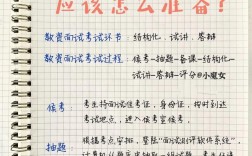 应该怎么准备?
教资面试考试环节:结构化、试讲、答辩
教资面试考试过程:候考-抽题-备课-结构化-
试讲-答辩-评分@小魔女
候考:考生持面试准考证、身份证,按时到达
考试地点,进入候考室候考。
抽题:根据考点安排,登陆“面试测评软件系统”,